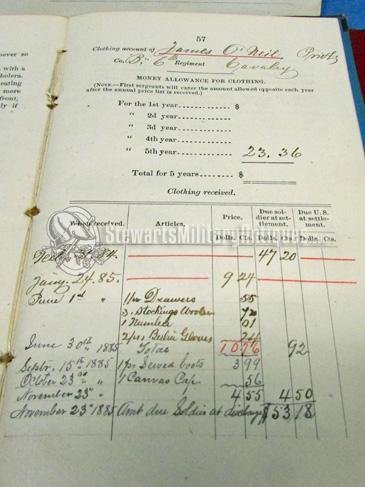 57
Clothing account of James O'Neil Privt
Co. B, 6 Regiment Cavalry
MONEY ALLOWANCE FOR CLOTHING.
(NOTE.—First sergeants will enter the amount allowed opposite each year
after the annual price list is received.)
For the 1st year $
" 2d year
" 3d year
" 4th year
" 5th year 23.36
Total for 5 years $
Clothing received.
When received. Articles. Price. Due soldier at settlement. Due U.S. at settlement.
Dolls. Cts. Dolls. Cts. Dolls. Cts.
84. 47 20
Jany. 24. 85. 9 24
June 1st " 1 pr Drawers 55
3 Stockings Woolen
1 Number 01
2 prs Berlin Gloves
June 30th 1885 Total 10 92
Septr. 15th 1885 1 pr Sewed boots 3 99
October 23rd " 1 Canvas Cap 56
November 23rd " 4 55 4 50
November 23rd 1885 Amt due Soldier at discharge $53 18
StewartsMilitaryAntiques